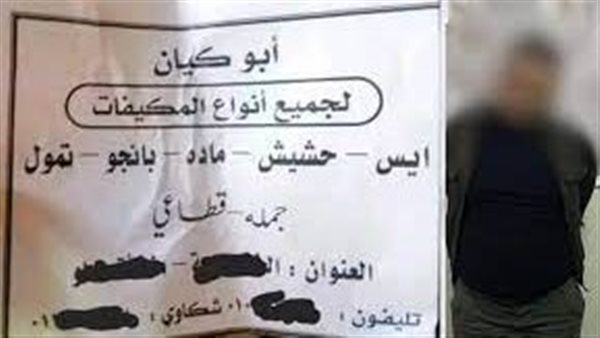 أبو كيان
لجميع أنواع المكيفات
ايس - حشيش - ماده - بانجو - تمول
جمله - قطاعي
العنوان : الـ -
تليفون : ٠١٠ شكاوي : ٠١